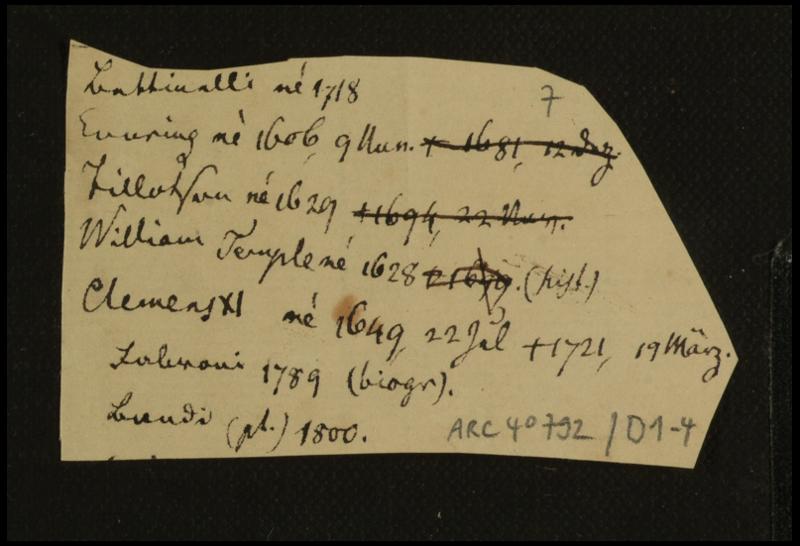 Bettinelli né 1718
7
Conring né 1606, 9 Nov. + 1681, 12 Dez.
Tillotson né 1629 + 1694, 22 Nov.
William Temple né 1628 + 1699. (hist.)
Clemens XI né 1649, 22 Jul + 1721, 19 März.
Fabroni 1789 (biogr).
Bondi (pt.) 1800.
ARC 4° 792 / D1-4